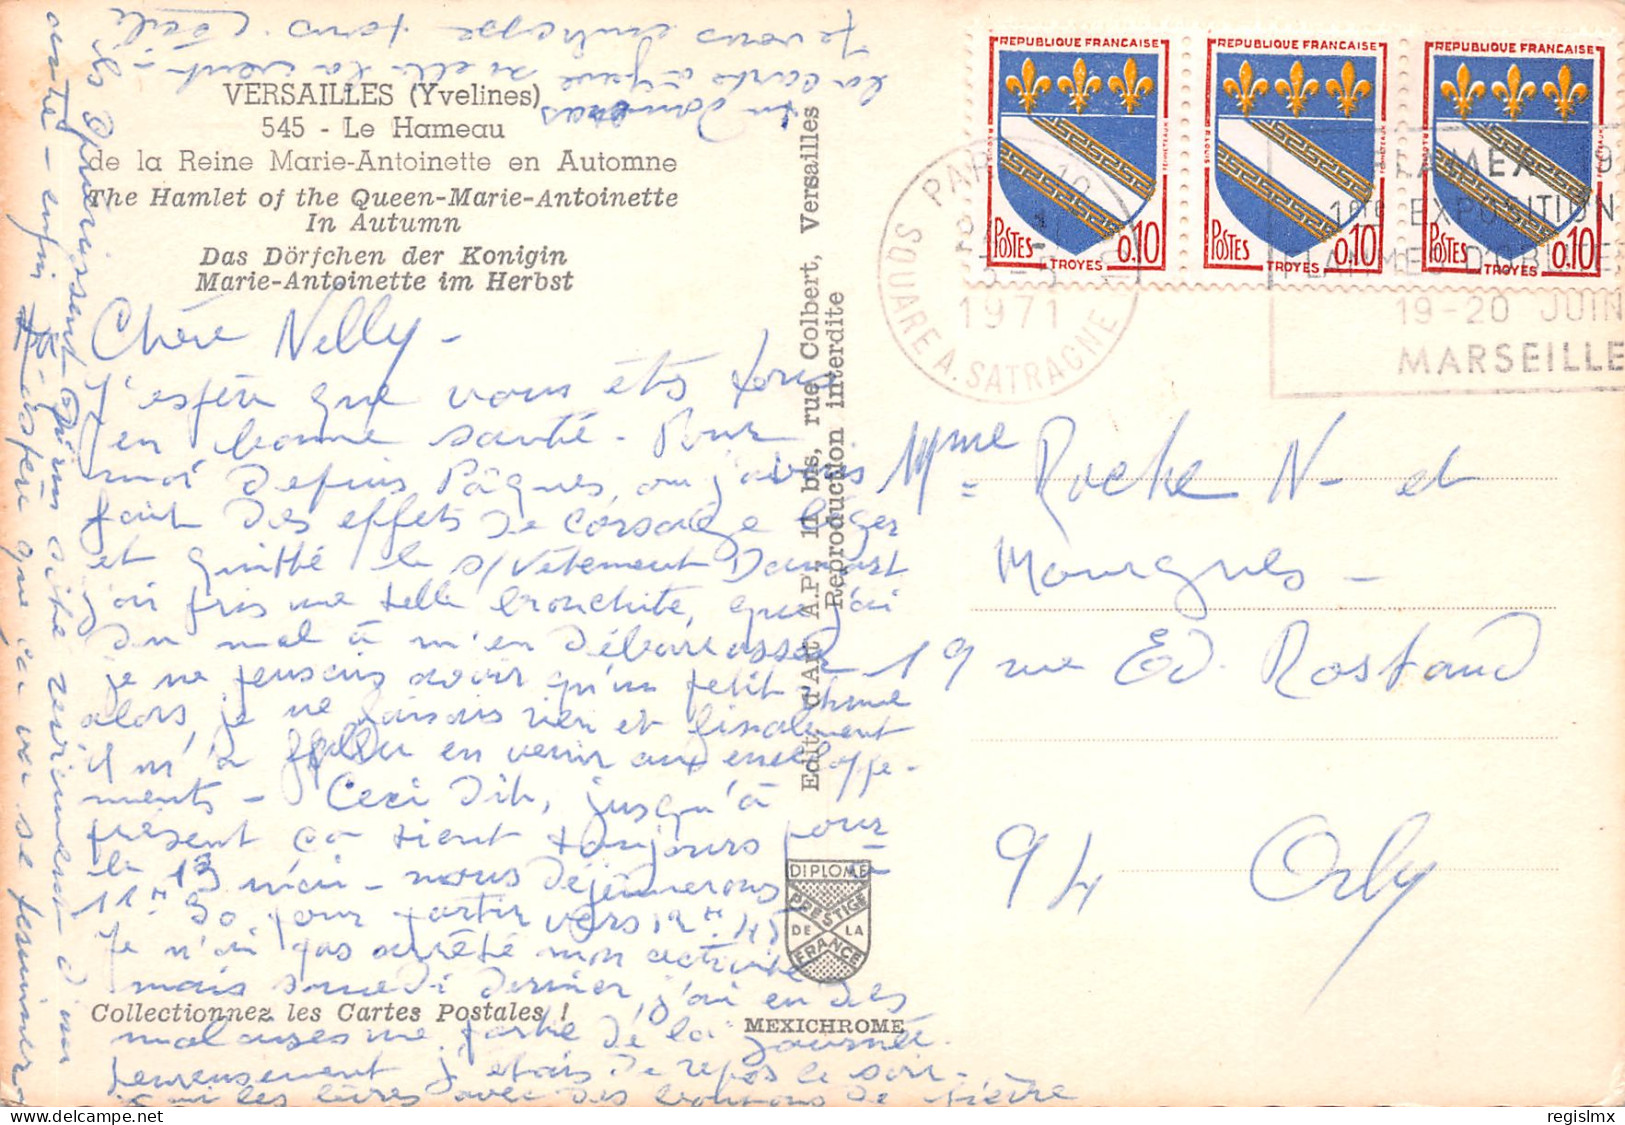 VERSAILLES (Yvelines)
545 - Le Hameau
de la Reine Marie-Antoinette en Automne
The Hamlet of the Queen-Marie-Antoinette
In Autumn
Das Dörfchen der Konigin
Marie-Antoinette im Herbst
Chère Nelly -
J'espère que vous êtes tous
en bonne santé - Pour
moi depuis Pâques, ou j'avais
fait des effets de corsage léger
et quitté le s/vetement Damart
j'ai pris une telle bronchite, que j'ai
du mal à m'en débarrasser
je ne pensais avoir qu'un petit rhume
alors, je ne faisais rien et finalement
il m'a fallu en venir aux enveloppe-
ments - Ceci dit, jusqu'à
présent ça tient toujours pour
le 13 mai - nous déjeunerons
11H 30 pour partir vers 12H 45
Je n'ai pas arrêté mon activité
mais samedi dernier, j'ai eu des
malaises une partie de la journée.
heureusement j'étais de repos le soir -
les lèvres avec des boutons de fièvre
ils épaississent
d'un côté reviennent d'un
autre - enfin j'espère que ça va se terminer
Tu donneras
la carte à
si elle la veut -
Je vous embrasse tous Cécile
Edit. d'Art A.P., 11 bis, rue Colbert, Versailles
Reproduction interdite
DIPLOME
PRESTIGE
DE LA
FRANCE
Collectionnez les Cartes Postales !
MEXICHROME
REPUBLIQUE FRANÇAISE
POSTES
0,10
TROYES
REPUBLIQUE FRANÇAISE
POSTES
0,10
TROYES
REPUBLIQUE FRANÇAISE
POSTES
0,10
TROYES
PARIS 10
1971
SQUARE A. SATRAGNE
1ère EXPOSITION
19-20 JUIN
MARSEILLE
Mme Roche N- et
Mourgues -
19 rue Ed. Rostand
94 Orly
regislmx